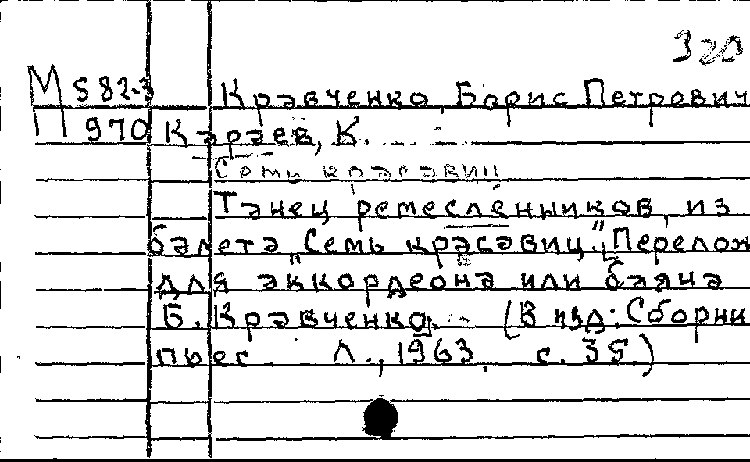 320
М 582-3 Кравченко, Борис Петрович
П 970 Караев, К.
Семь красавиц
Танец ремесленников, из
балета „Семь красавиц". [Перелож
для аккордеона или баяна
Б. Кравченко]. (В изд: Сборни
пьес Л., 1963, с. 35.)